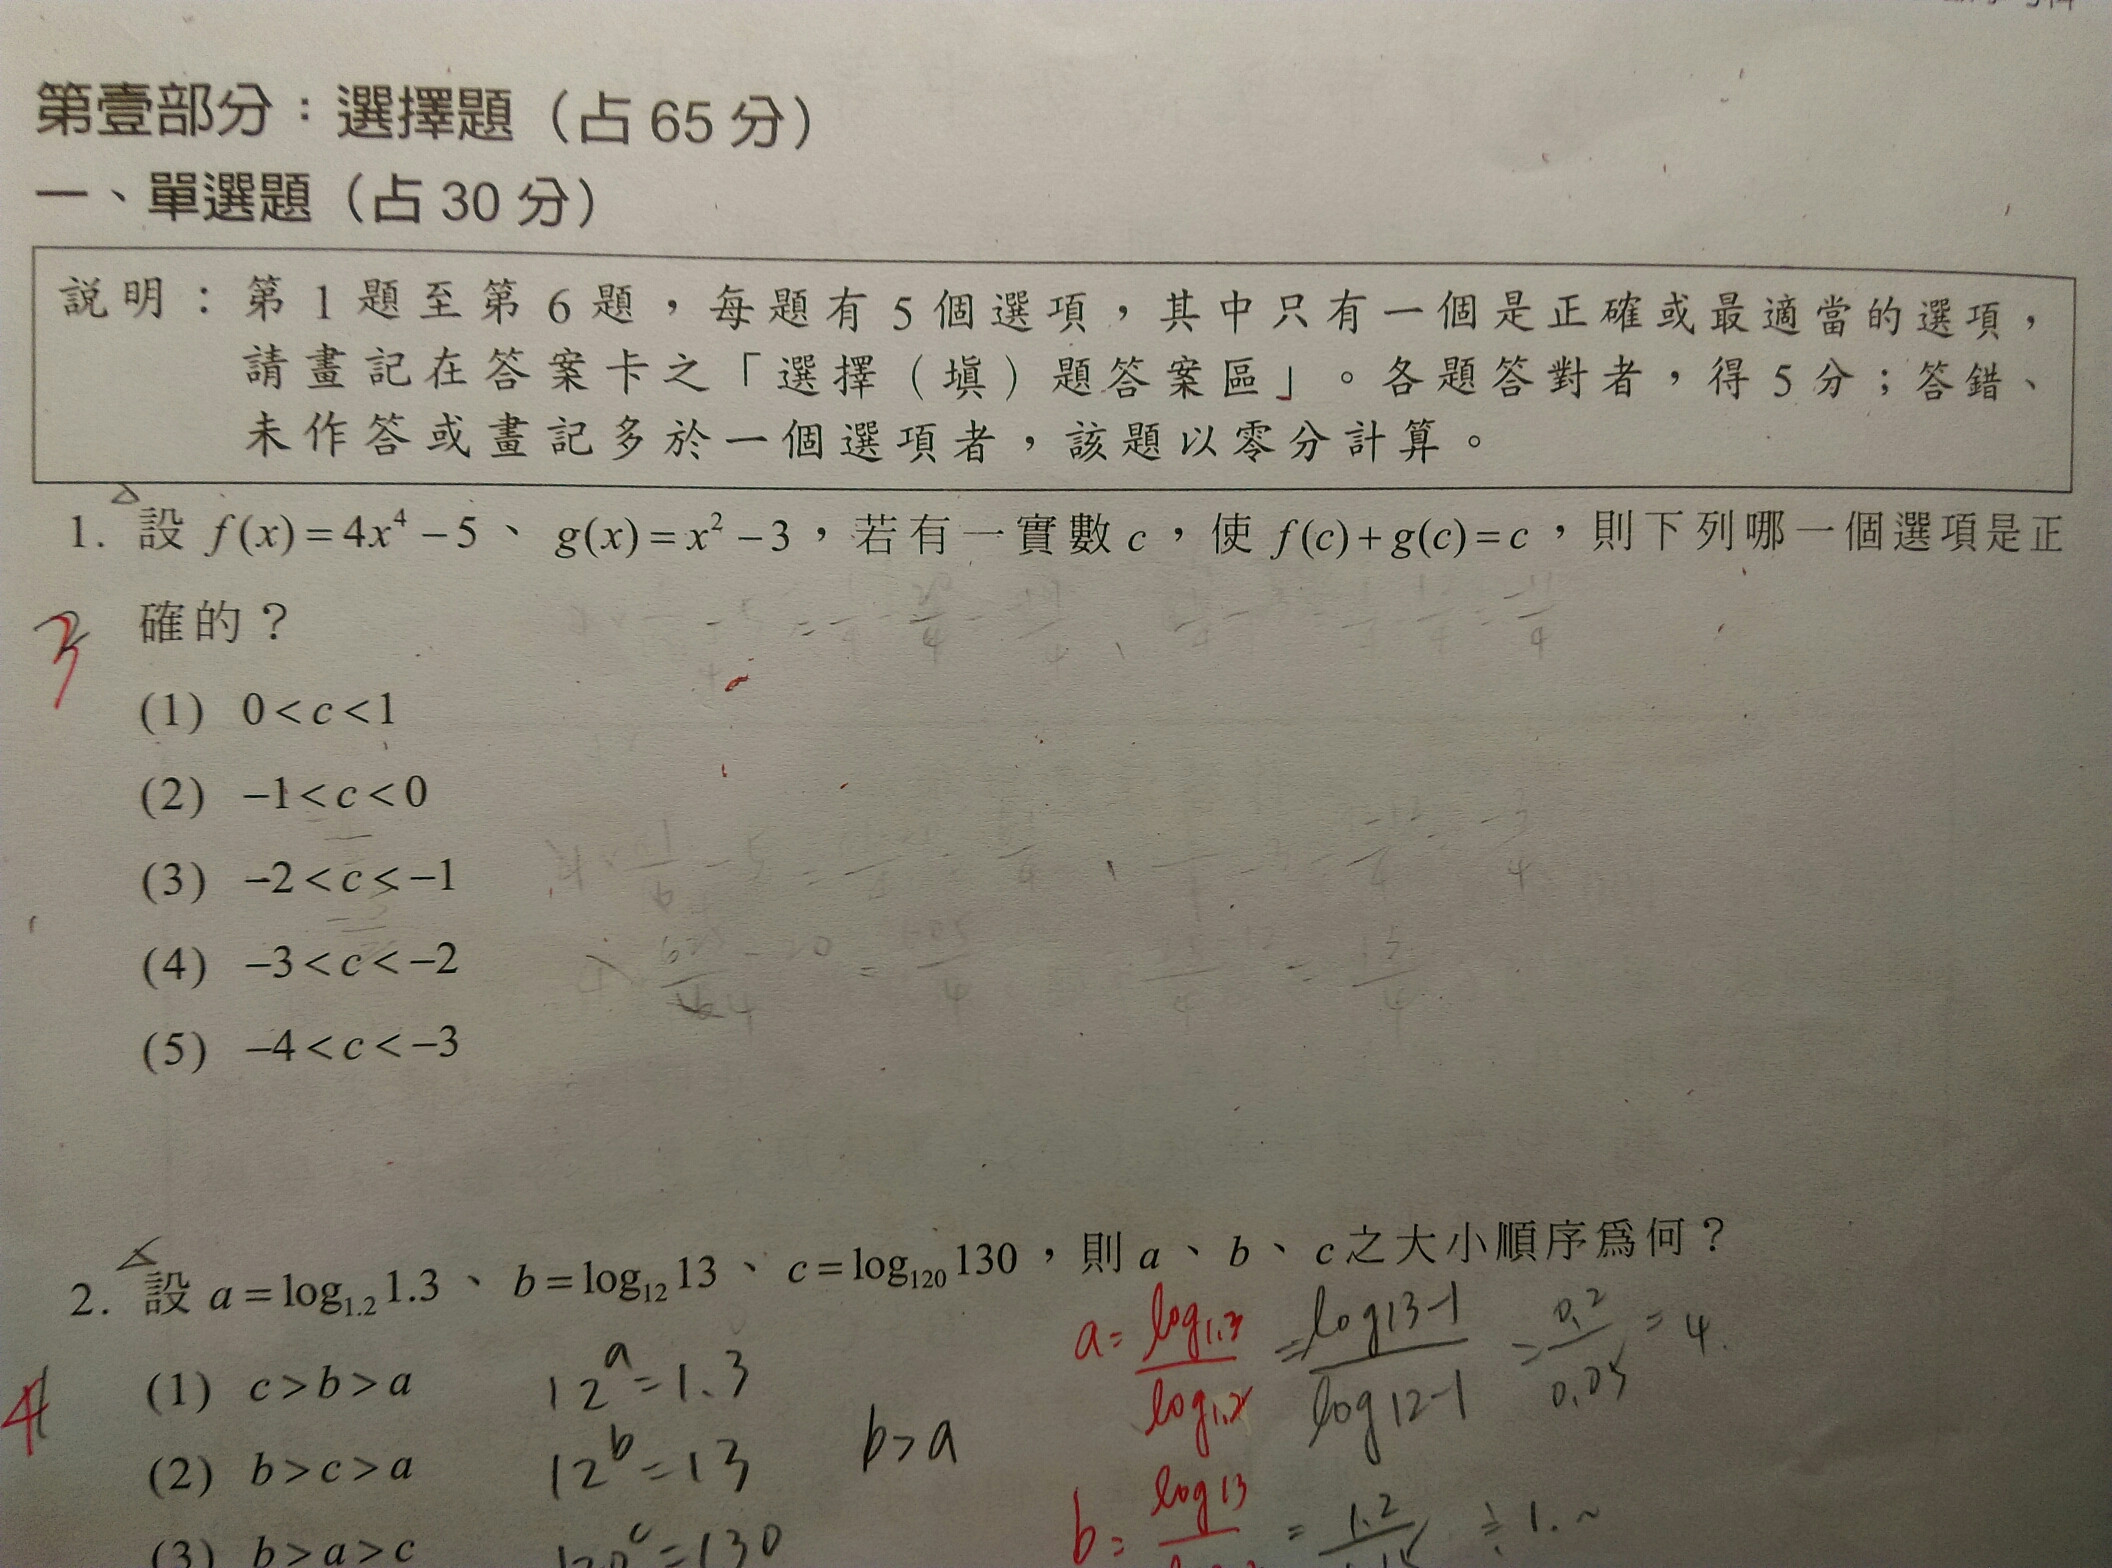 第壹部分：選擇題（占 65 分）
一、單選題（占 30 分）
說明：第 1 題至第 6 題，每題有 5 個選項，其中只有一個是正確或最適當的選項，
請畫記在答案卡之「選擇（填）題答案區」。各題答對者，得 5 分；答錯、
未作答或畫記多於一個選項者，該題以零分計算。
1. 設 f(x)=4x⁴−5、g(x)=x²−3，若有一實數 c，使 f(c)+g(c)=c，則下列哪一個選項是正
確的？
3
(1) 0<c<1
(2) −1<c<0
(3) −2<c<−1
(4) −3<c<−2
(5) −4<c<−3
2. 設 a=log₁.₂1.3、b=log₁₂13、c=log₁₂₀130，則 a、b、c之大小順序為何？
4
a= log1.3/log1.2 = log13-1/log12-1 = 0.2/0.05 = 4.
(1) c>b>a
12ᵃ=1.3
(2) b>c>a
12ᵇ=13
b>a
b= log13
= 1.2
≑ 1.~
(3) b>a>c
120ᶜ=130